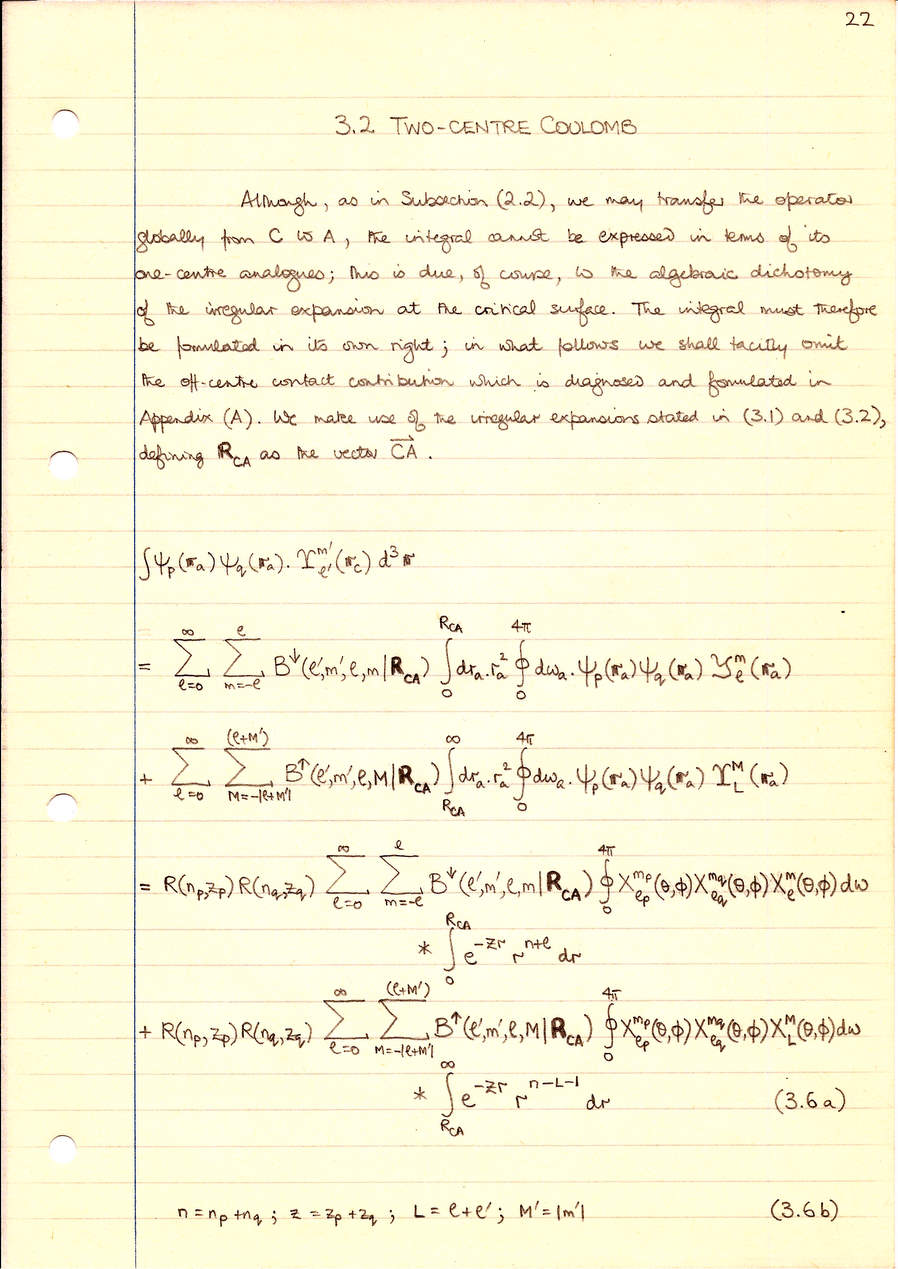 22
3.2 TWO-CENTRE COULOMB
Although, as in Subsection (2.2), we may transfer the operator
globally from C to A, the integral cannot be expressed in terms of its
one-centre analogues; this is due, of course, to the algebraic dichotomy
of the irregular expansion at the critical surface. The integral must therefore
be formulated in its own right; in what follows we shall tacitly omit
the off-centre contact contribution which is diagnosed and formulated in
Appendix (A). We make use of the irregular expansions stated in (3.1) and (3.2),
defining 𝐑_CA as the vector \overrightarrow{CA}.
∫ψ_p(𝐫_a)ψ_q(𝐫_a).ϒ_{ℓ'}^{m'}(𝐫_c) d³𝐫
= ∑_{ℓ=0}^{∞} ∑_{m=-ℓ}^{ℓ} B^↓(ℓ',m',ℓ,m|𝐑_CA) ∫_0^{R_CA} dr_a.r_a² ∮_0^{4π} dω_a.ψ_p(𝐫_a)ψ_q(𝐫_a) 𝒴_ℓ^m(𝐫_a)
+ ∑_{ℓ=0}^{∞} ∑_{M=-|ℓ+M'|}^{(ℓ+M')} B^↑(ℓ',m',ℓ,M|𝐑_CA) ∫_{R_CA}^{∞} dr_a.r_a² ∮_0^{4π} dω_a.ψ_p(𝐫_a)ψ_q(𝐫_a) ϒ_L^M(𝐫_a)
= R(n_p,z_p)R(n_q,z_q) ∑_{ℓ=0}^{∞} ∑_{m=-ℓ}^{ℓ} B^↓(ℓ',m',ℓ,m|𝐑_CA) ∮_0^{4π} X_{ℓp}^{mp}(θ,φ)X_{ℓq}^{mq}(θ,φ)X_ℓ^m(θ,φ)dω
* ∫_0^{R_CA} e^{-zr} r^{n+ℓ} dr
+ R(n_p,z_p)R(n_q,z_q) ∑_{ℓ=0}^{∞} ∑_{M=-|ℓ+M'|}^{(ℓ+M')} B^↑(ℓ',m',ℓ,M|𝐑_CA) ∮_0^{4π} X_{ℓp}^{mp}(θ,φ)X_{ℓq}^{mq}(θ,φ)X_L^M(θ,φ)dω
* ∫_{R_CA}^{∞} e^{-zr} r^{n-L-1} dr (3.6a)
n = n_p+n_q ; z = z_p+z_q ; L = ℓ+ℓ' ; M' = |m'| (3.6b)